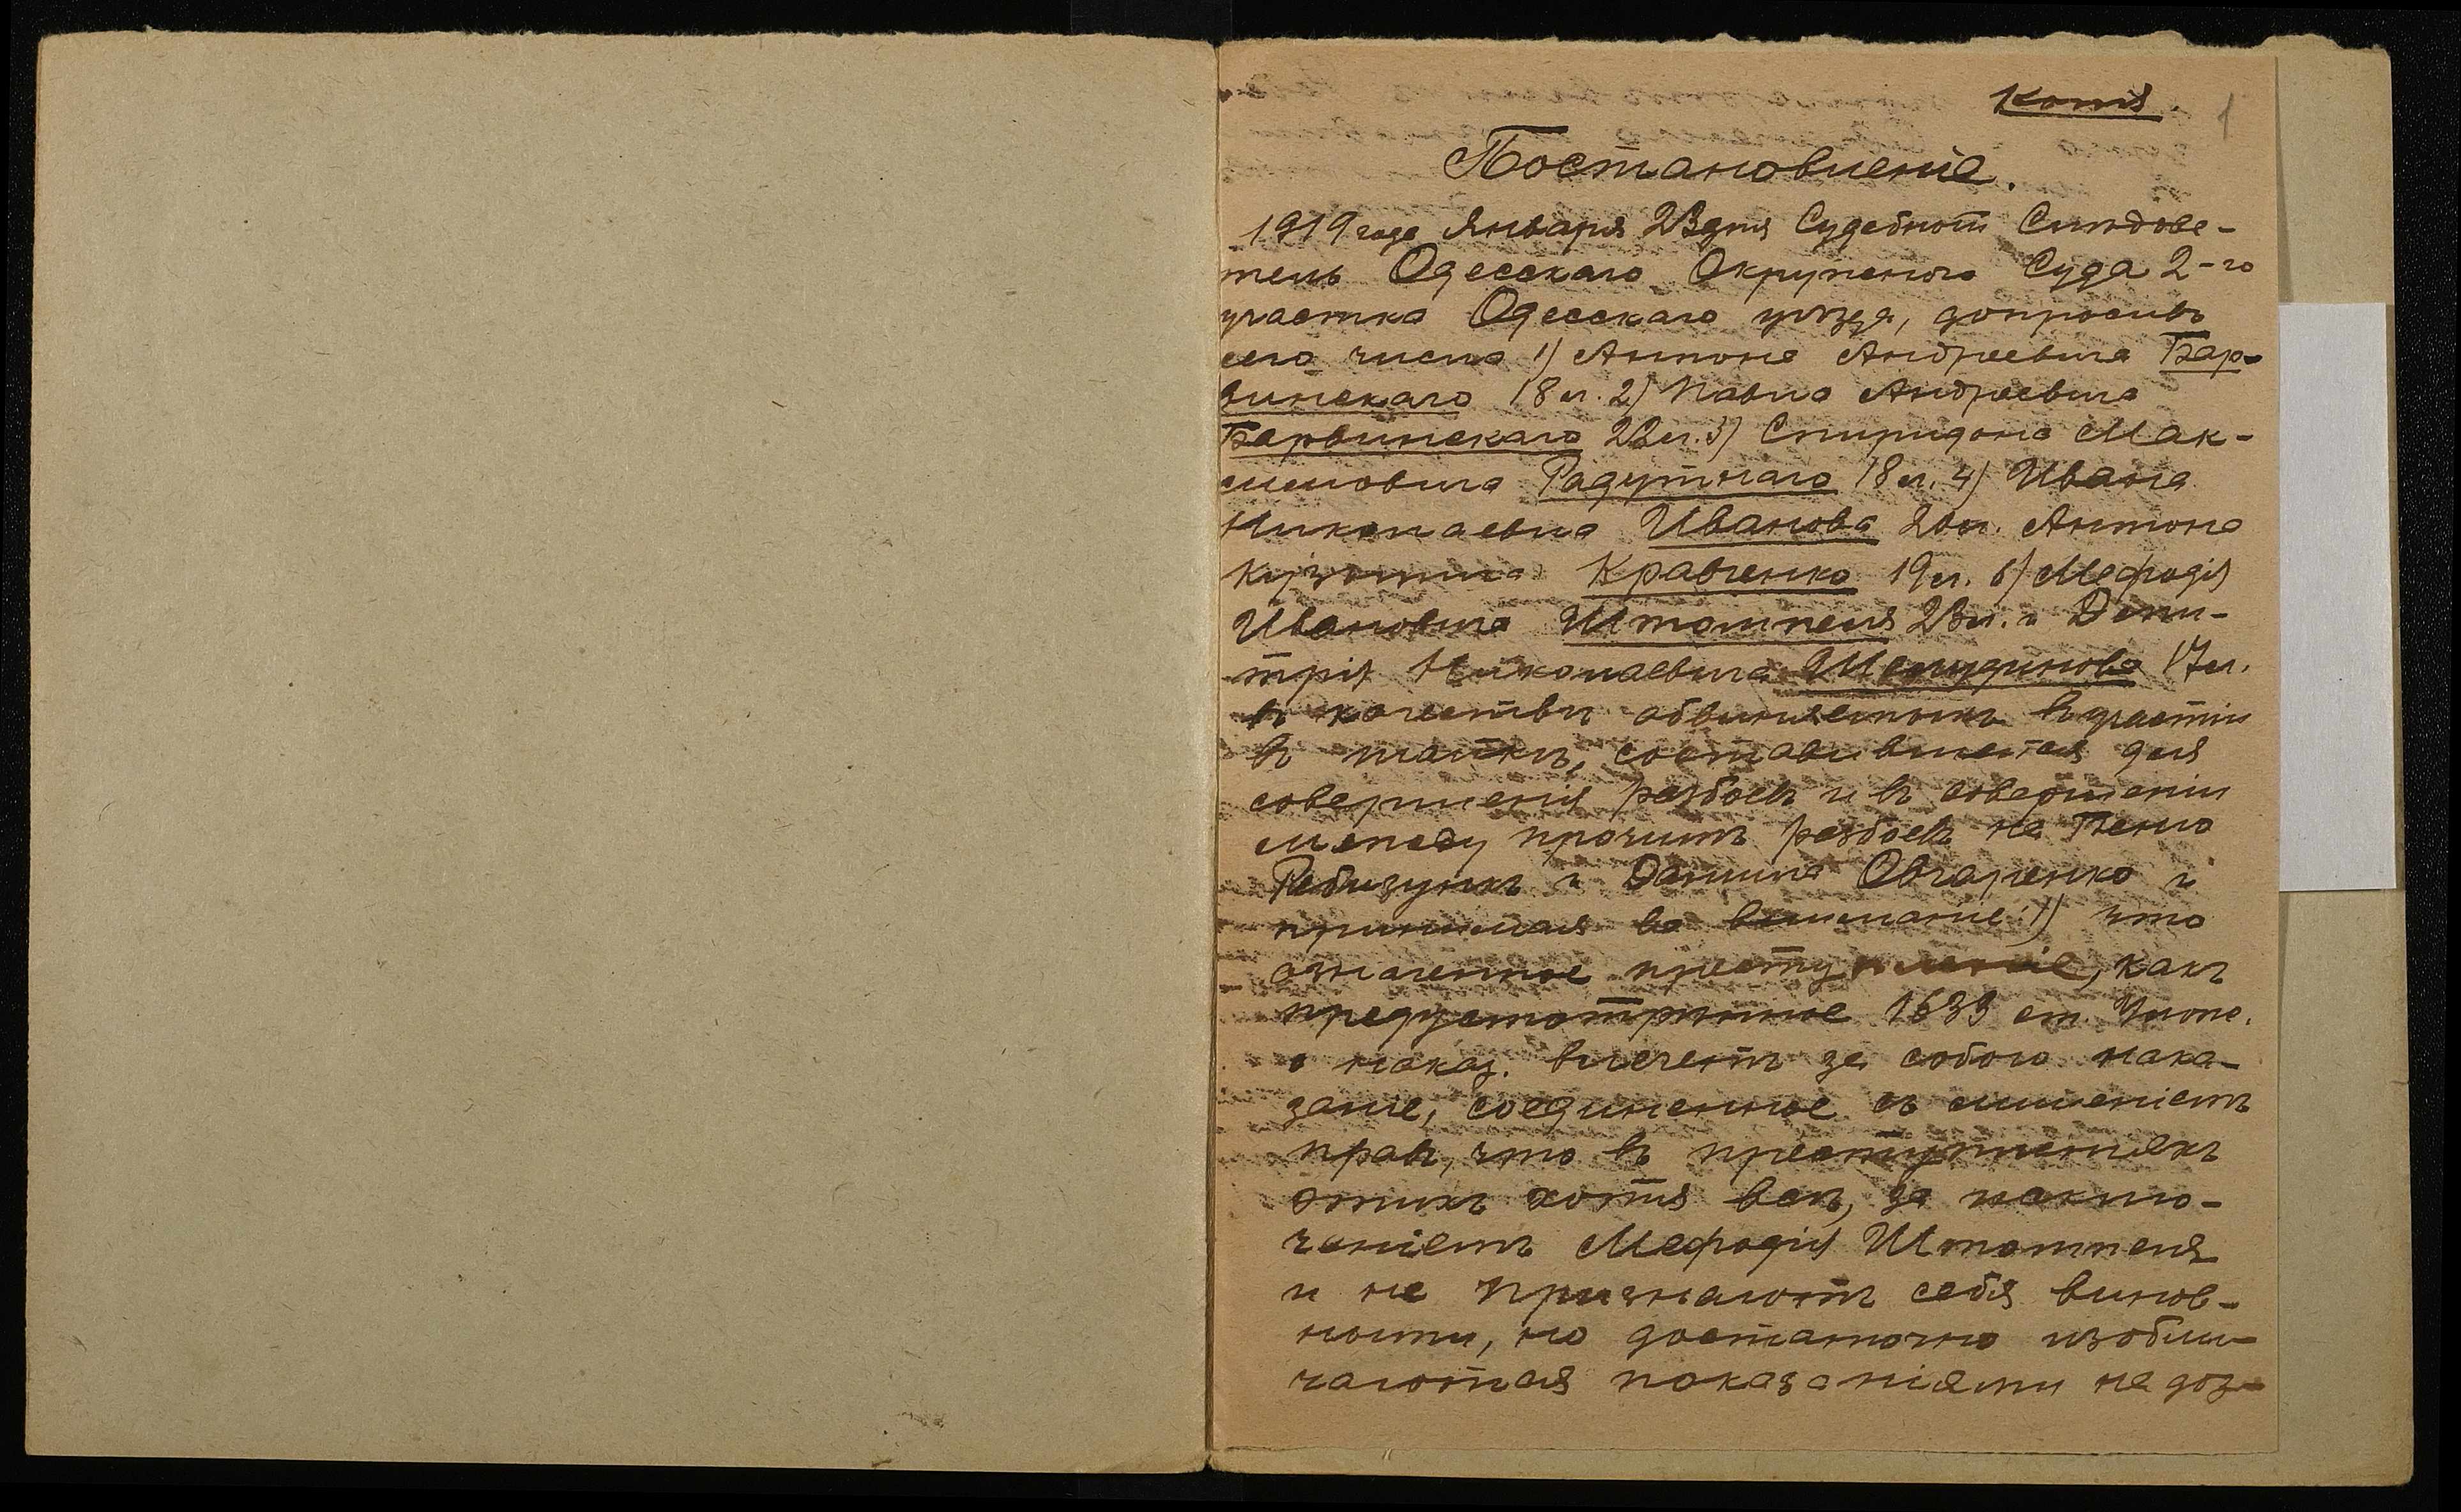 Копія
1
Постановленіе.
1919 года Января 23 дня Судебный Слѣдова-
тель Одесскаго Окружного Суда 2-го
участка Одесскаго уѣзда, допросивъ
сего числа 1) Антона Андреевича Бар-
винскаго 18 л. 2) Павла Андреевича
Барвинскаго 22 л. 3) Спиридона Мак-
симовича Радутнаго 18 л. 4) Ивана
Николаевича Иванова 20 л. Антона
Кузьмича Кравченко 19 л. 6) Мефодія
Ивановича Штомпеля 23 л. и Дми-
трія Николаевича 17 л.
въ качествѣ обвиняемыхъ въ участіи
въ шайкѣ, составившейся для
совершенія разбоевъ и въ совершеніи
между прочимъ разбоевъ на
и Данила Овчаренко и
принимая во вниманіе 1) что
означенное преступленіе, какъ
предусмотрѣнное 1633 ст. Улож.
о наказ. влечетъ за собою нака-
заніе, соединенное съ лишеніемъ
правъ, что въ преступленіяхъ
этихъ хотя всѣ, за исклю-
ченіемъ Мефодія Штомпеля
и не признаютъ себя винов-
ными, но достаточно изобли-
чаются показаніями на доз-